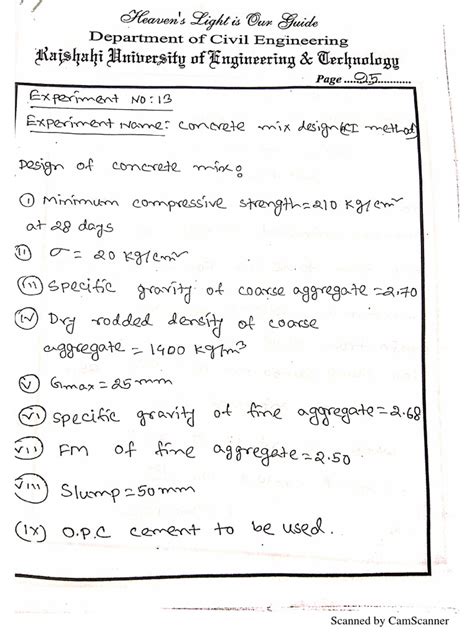 Heaven's Light is Our Guide
Department of Civil Engineering
Rajshahi University of Engineering & Technology
Page ....25............
Experiment NO: 13
Experiment Name: Concrete mix design (ACI method)
Design of concrete mix:
(i) Minimum compressive strength = 210 kg/cm²
at 28 days
(ii) σ = 20 kg/cm²
(iii) Specific gravity of coarse aggregate = 2.70
(iv) Dry rodded density of coarse
aggregate = 1400 kg/m³
(v) Gmax = 25 mm
(vi) Specific gravity of fine aggregate = 2.68
(vii) FM of fine aggregate = 2.50
(viii) Slump = 50 mm
(ix) O.P.C cement to be used.
Scanned by CamScanner